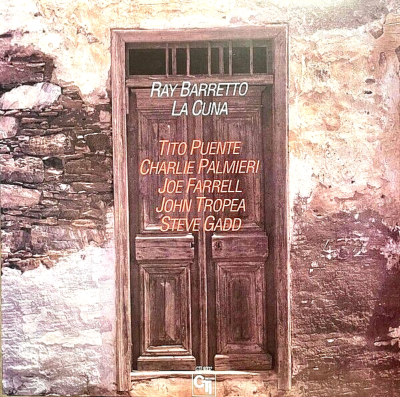 RAY BARRETTO
LA CUNA
TITO PUENTE
CHARLIE PALMIERI
JOE FARRELL
JOHN TROPEA
STEVE GADD
CTI